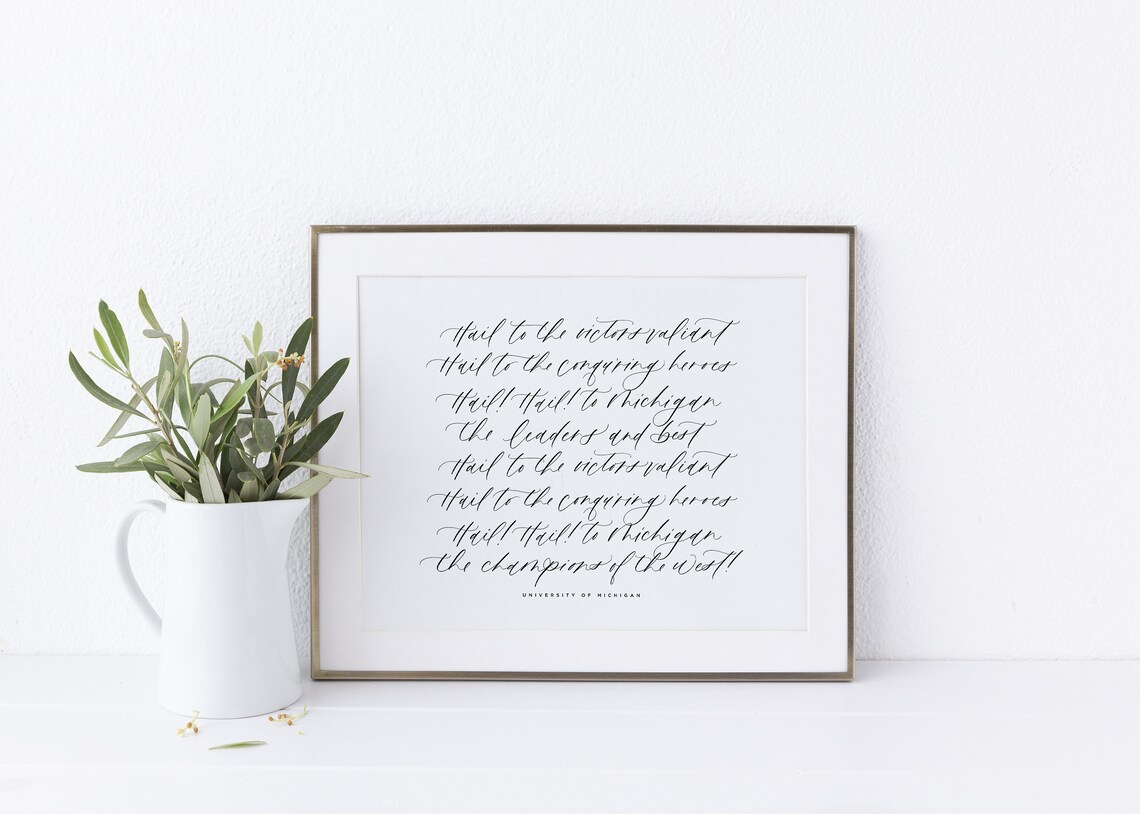 Hail to the victors valiant
Hail to the conquring heroes
Hail! Hail! to Michigan
the leaders and best
Hail to the victors valiant
Hail to the conquring heroes
Hail! Hail! to Michigan
the champions of the West!
UNIVERSITY OF MICHIGAN